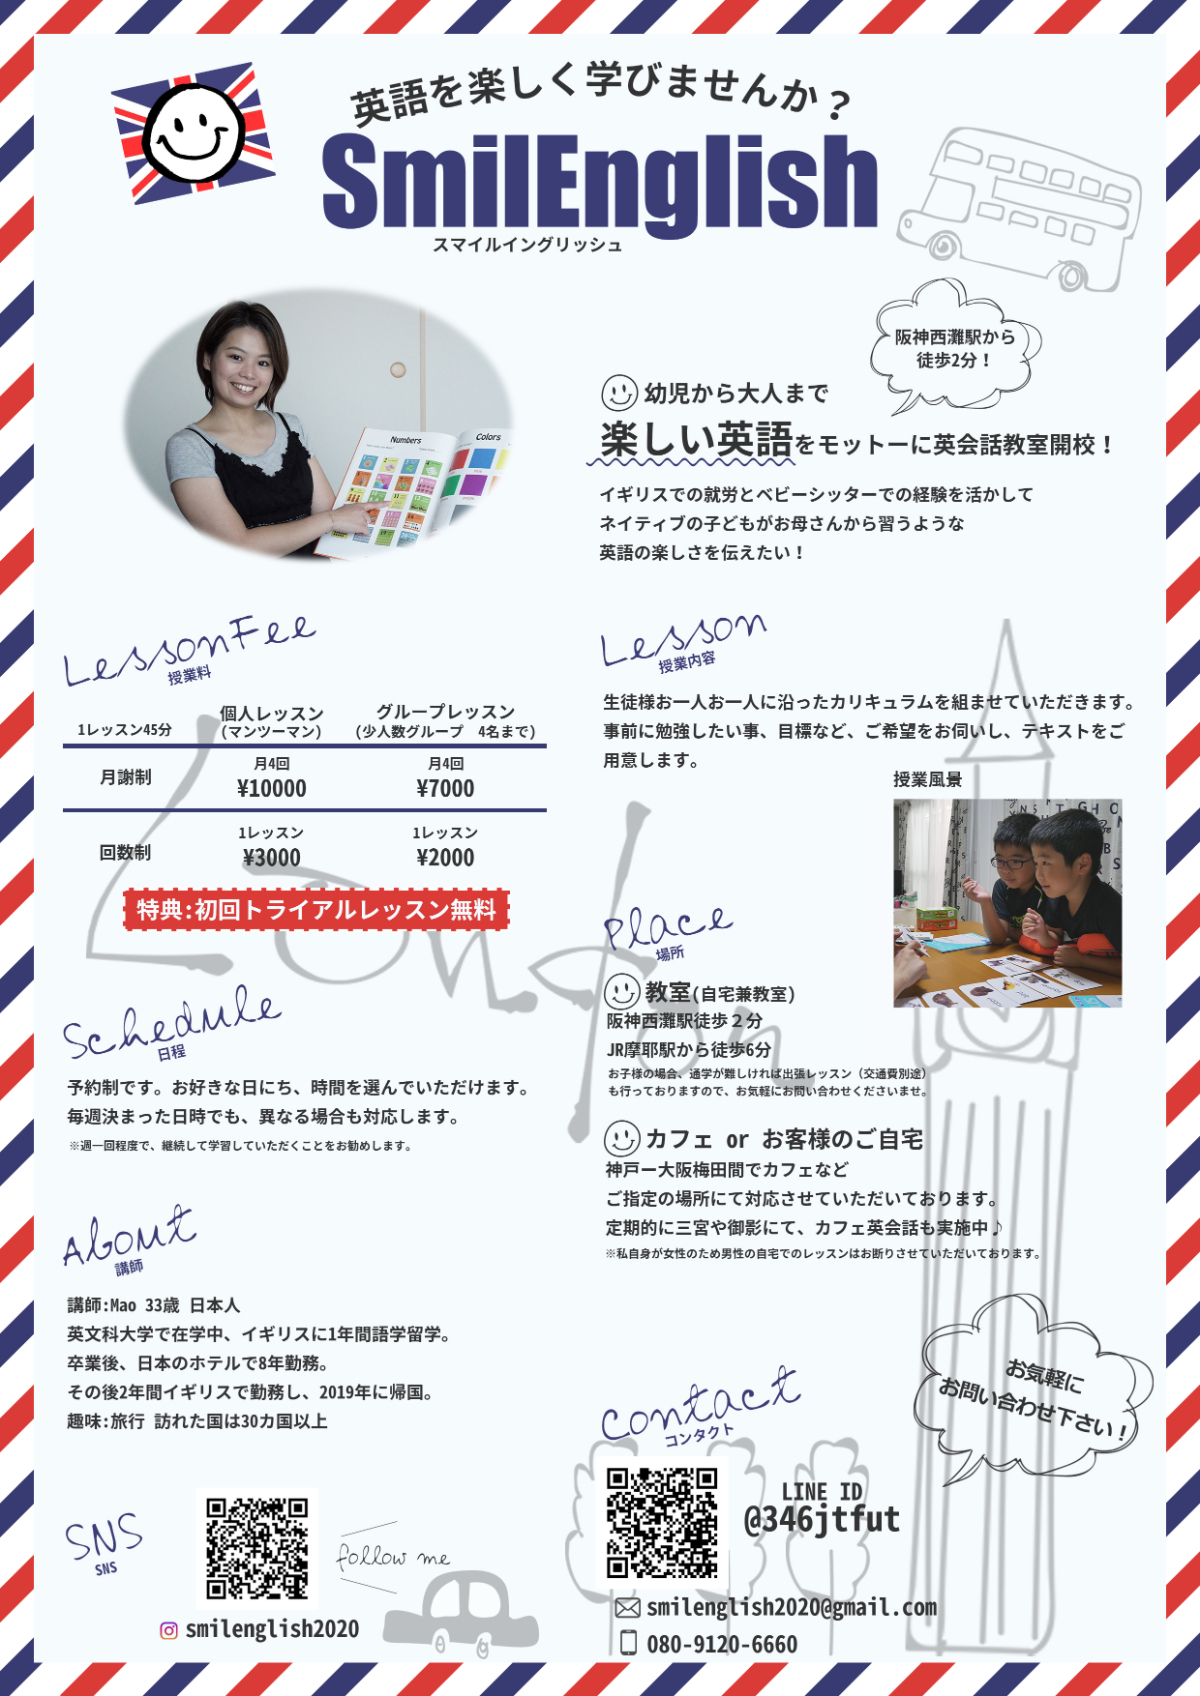 英語を楽しく学びませんか？
SmilEnglish
スマイルイングリッシュ
阪神西灘駅から
徒歩2分！
幼児から大人まで
楽しい英語をモットーに英会話教室開校！
イギリスでの就労とベビーシッターでの経験を活かして
ネイティブの子どもがお母さんから習うような
英語の楽しさを伝えたい！
Numbers
Colors
LessonFee
授業料
1レッスン45分
個人レッスン
(マンツーマン)
グループレッスン
(少人数グループ　4名まで)
月謝制
月4回
¥10000
月4回
¥7000
回数制
1レッスン
¥3000
1レッスン
¥2000
特典:初回トライアルレッスン無料
London
Lesson
授業内容
生徒様お一人お一人に沿ったカリキュラムを組ませていただきます。
事前に勉強したい事、目標など、ご希望をお伺いし、テキストをご
用意します。
授業風景
Place
場所
教室(自宅兼教室)
阪神西灘駅徒歩２分
JR摩耶駅から徒歩6分
お子様の場合、通学が難しければ出張レッスン（交通費別途）
も行っておりますので、お気軽にお問い合わせくださいませ。
カフェ or お客様のご自宅
神戸ー大阪梅田間でカフェなど
ご指定の場所にて対応させていただいております。
定期的に三宮や御影にて、カフェ英会話も実施中♪
※私自身が女性のため男性の自宅でのレッスンはお断りさせていただいております。
Schedule
日程
予約制です。お好きな日にち、時間を選んでいただけます。
毎週決まった日時でも、異なる場合も対応します。
※週一回程度で、継続して学習していただくことをお勧めします。
About
講師
講師:Mao 33歳 日本人
英文科大学で在学中、イギリスに1年間語学留学。
卒業後、日本のホテルで8年勤務。
その後2年間イギリスで勤務し、2019年に帰国。
趣味:旅行 訪れた国は30カ国以上
SNS
SNS
follow me
smilenglish2020
お気軽に
お問い合わせ下さい！
Contact
コンタクト
LINE ID
@346jtfut
smilenglish2020@gmail.com
080-9120-6660